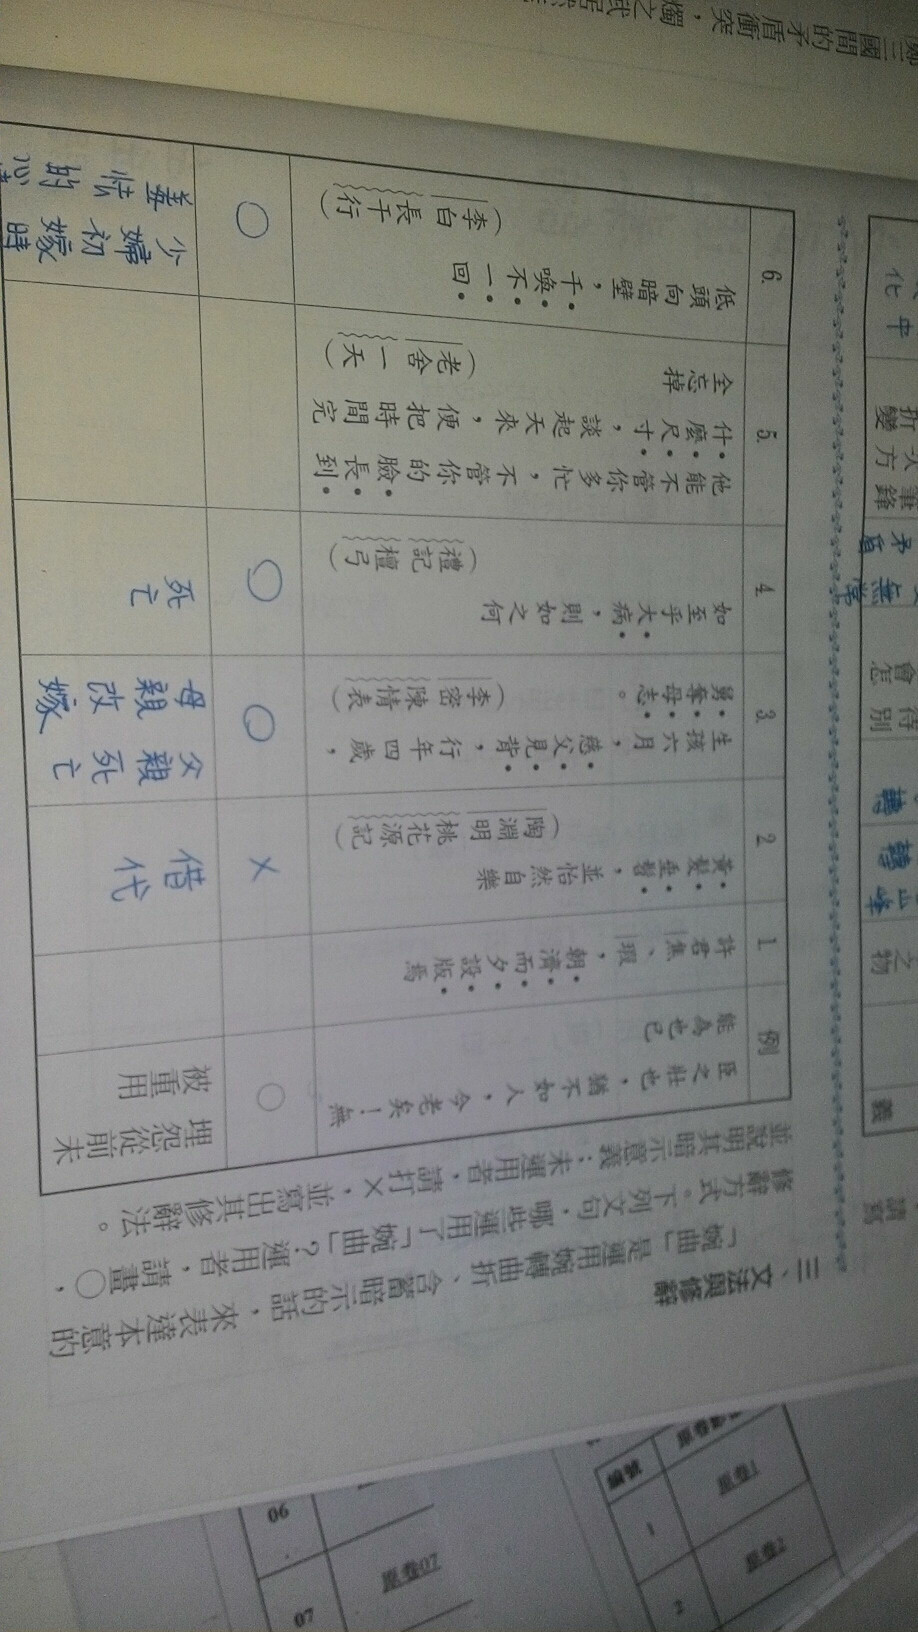 三、文法與修辭
「婉曲」是運用婉轉曲折、含蓄暗示的話，來表達本意的
修辭方式。下列文句，哪些運用了「婉曲」？運用者，請畫○，
並說明其暗示意義；未運用者，請打×，並寫出其修辭法。
例
臣之壯也，猶不如人，今老矣！無
能為也已
○
埋怨從前未
被重用
1
許君焦、瑕，朝濟而夕設版焉
2
黃髮垂髫，並怡然自樂
（陶淵明桃花源記）
×
借代
3.
生孩六月，慈父見背，行年四歲，
舅奪母志。（李密陳情表）
○
父親死亡
母親改嫁
4
如至乎大病，則如之何
（禮記檀弓）
○
死亡
5.
他能不管你多忙，不管你的臉長到
什麼尺寸，談起天來，便把時間完
全忘掉（老舍一天）
6.
低頭向暗壁，千喚不一回
（李白長干行）
○
少婦初嫁時
羞怯的
三國間的矛盾衝突
燭之武
中
化
折變
次方
筆鋒
矛盾
無常
會怎
待別
轉
轉
山峰
之物
義
請寫
06
07
題卷07
題卷1
題卷2